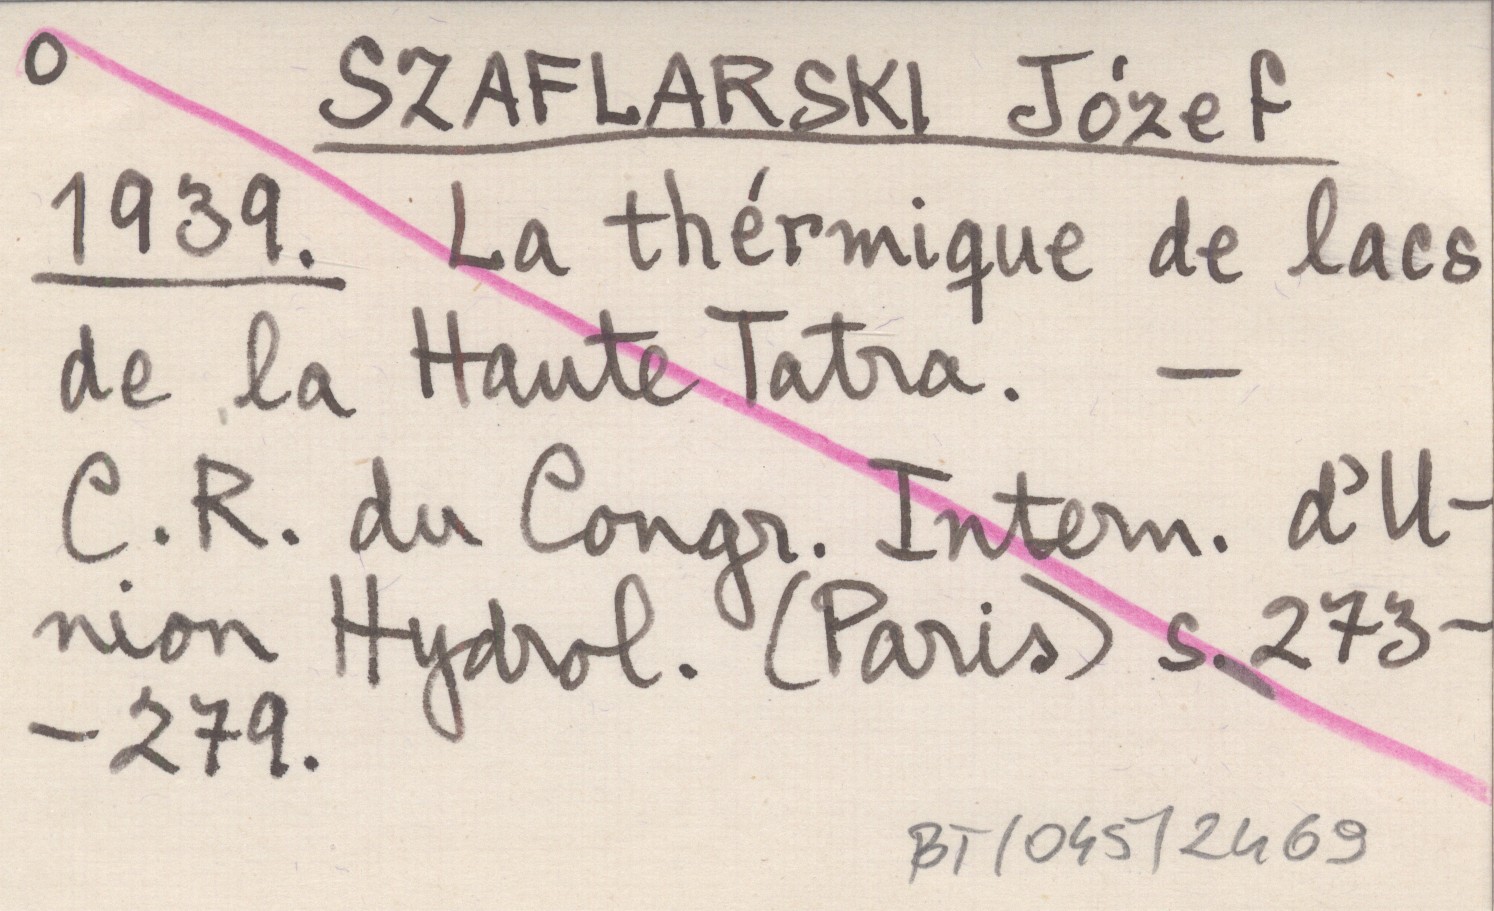 O SZAFLARSKI Józef
1939. La thérmique de lacs
de la Haute Tatra. —
C.R. du Congr. Intern. d'U-
nion Hydrol. (Paris) s. 273-
-279.
BT/045/2469